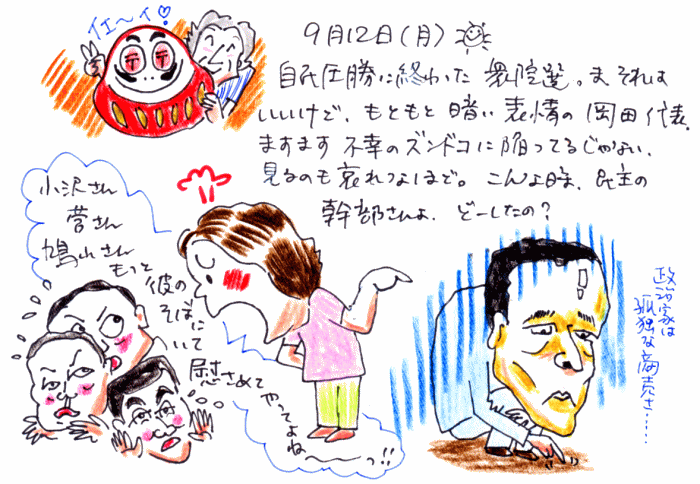 イェ〜イ♡
9月12日(月)
自民圧勝に終わった衆院選。ま それは
いいけど、もともと暗い表情の岡田代表、
ますます不幸のズンドコに陥ってるじゃない、
見るのも哀れなほどで。こんな時、民主の
幹部さんよ、どーしたの?
小沢さん
菅さん
鳩山さん
もっと
彼の
そばに
いて
慰さめて
やってよね
〜〜っ!!
政治家は
孤独な商売さ……